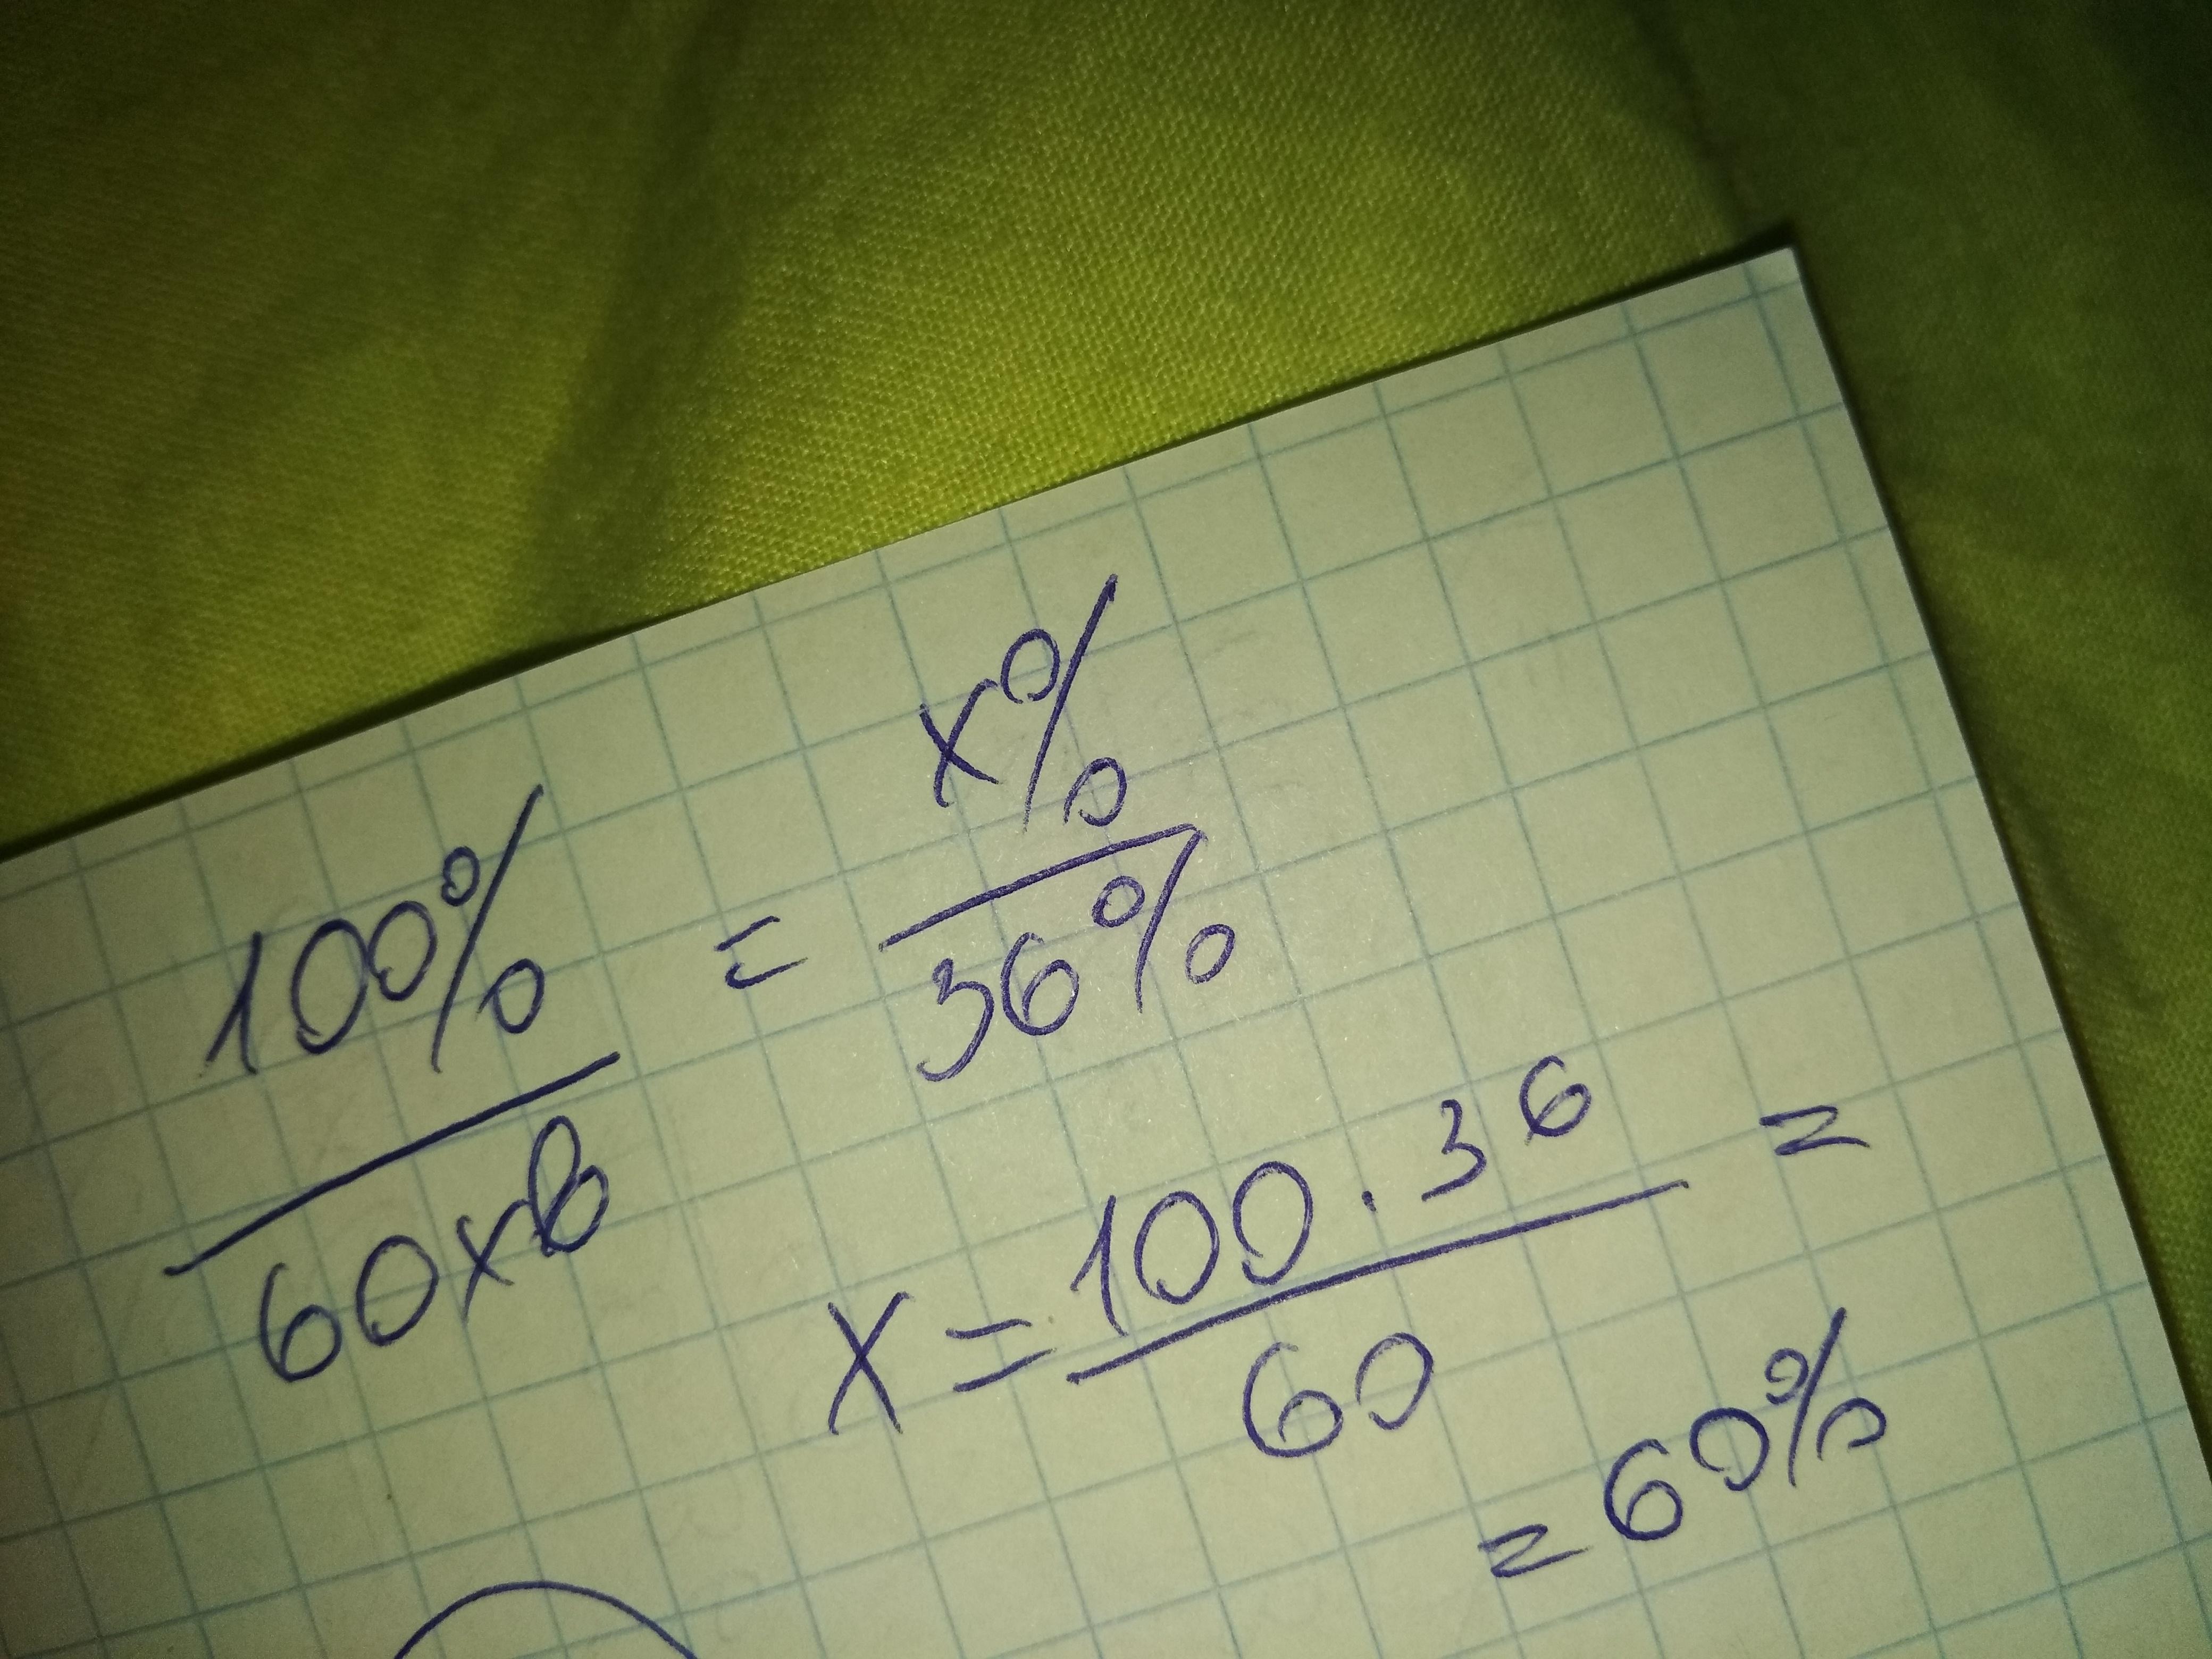 100% / 60хв = x% / 36%
x = 100 · 36 / 60 =
= 60%